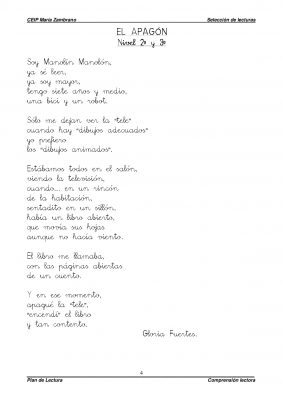 CEIP María Zambrano Selección de lecturas
EL APAGÓN
Nivel 2º y 3º
Soy Manolín Manolón,
ya sé leer,
ya soy mayor,
tengo siete años y medio,
una bici y un robot.
Sólo me dejan ver la "tele"
cuando hay "dibujos adecuados"
yo prefiero
los "dibujos animados".
Estábamos todos en el salón,
viendo la televisión,
cuando... en un rincón
de la habitación,
sentadito en un sillón,
había un libro abierto,
que movía sus hojas
aunque no hacía viento.
El libro me llamaba,
con las páginas abiertas
de un cuento.
Y en ese momento,
apagué la "tele",
"encendí" el libro
y tan contento.
Gloria Fuertes.
4
Plan de Lectura Comprensión lectora